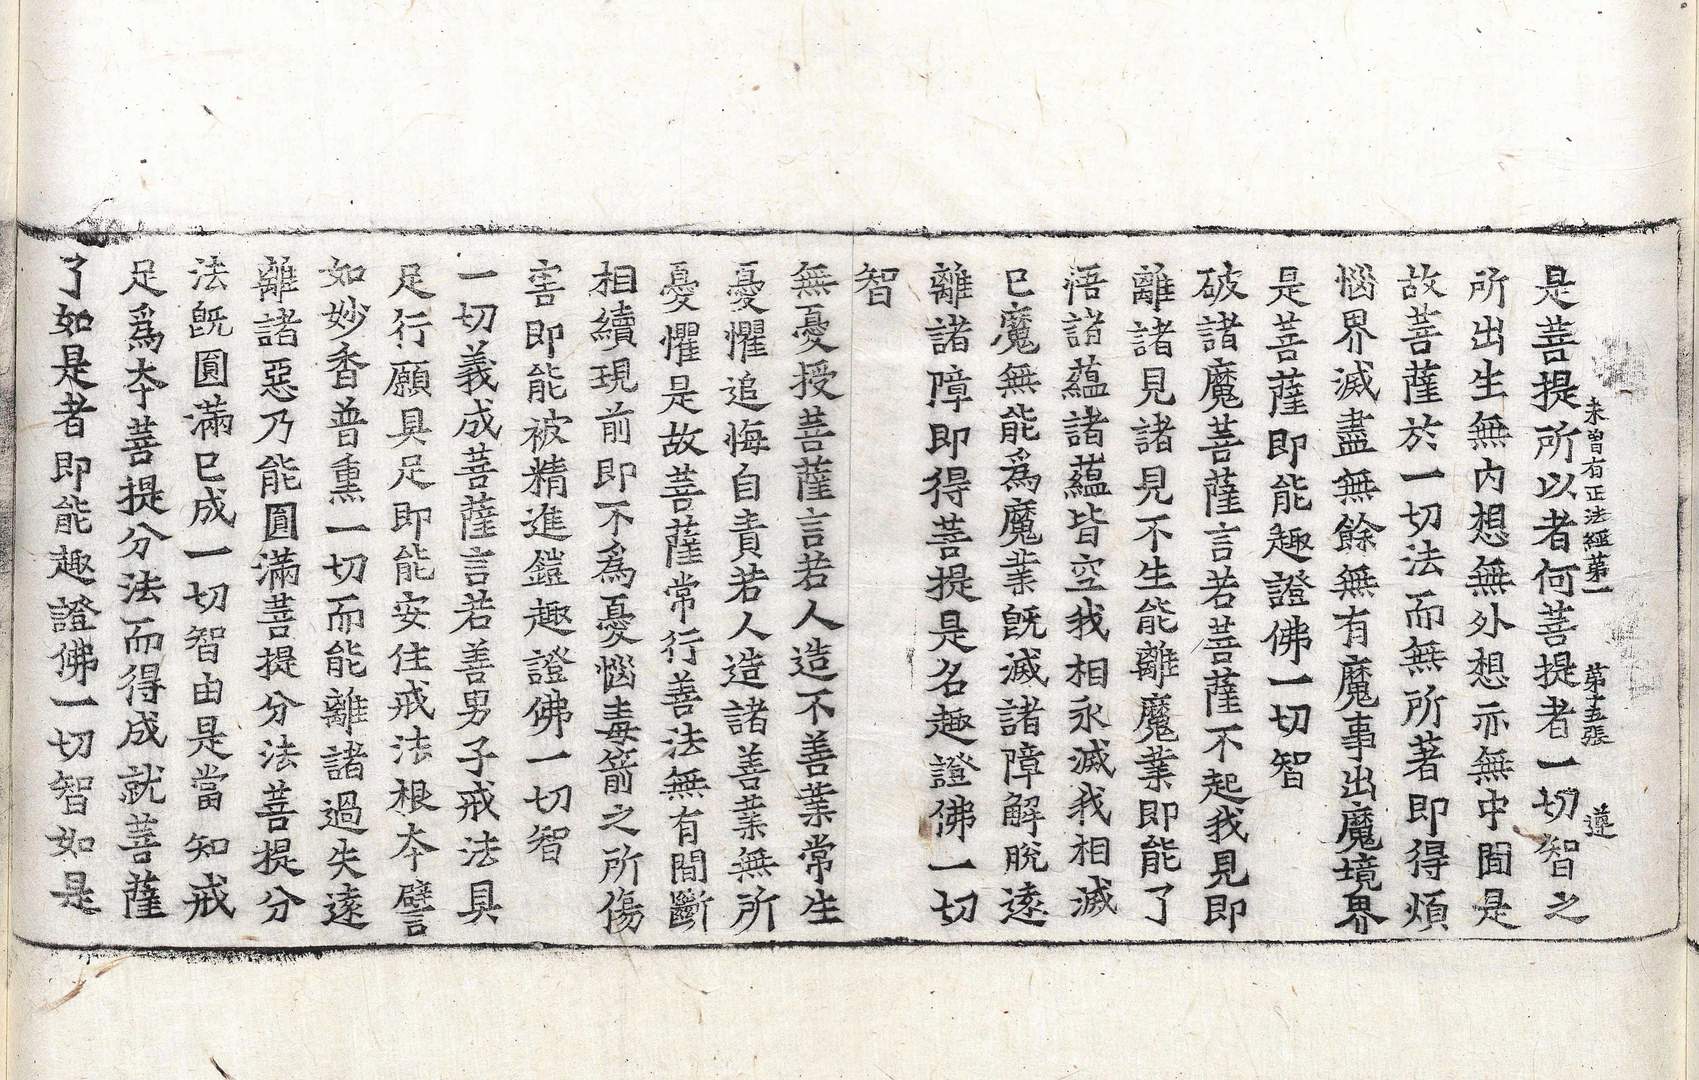 未曾有正法經第一 第十五張 遵
是菩提所以者何菩提者一切智之
所出生無內想無外想亦無中間是
故菩薩於一切法而無所著即得煩
惱界滅盡無餘無有魔事出魔境界
是菩薩即能趣證佛一切智
破諸魔菩薩言若菩薩不起我見即
離諸見諸見不生能離魔業即能了
悟諸蘊諸蘊皆空我相永滅我相滅
已魔無能爲魔業旣滅諸障解脫遠
離諸障即得菩提是名趣證佛一切
智
無憂授菩薩言若人造不善業常生
憂懼追悔自責若人造諸善業無所
憂懼是故菩薩常行善法無有間斷
相續現前即不爲憂惱毒箭之所傷
害即能被精進鎧趣證佛一切智
一切義成菩薩言若善男子戒法具
足行願具足即能安住戒法根夲譬
如妙香普熏一切而能離諸過失遠
離諸惡乃能圓滿菩提分法菩提分
法旣圓滿已成一切智由是當知戒
足爲夲菩提分法而得成就菩薩
了如是者即能趣證佛一切智如是